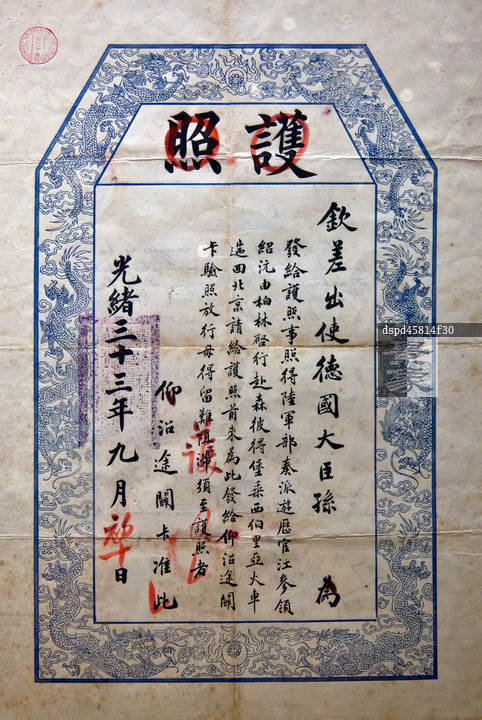 護照
欽差出使德國大臣孫 為
發給護照事照得陸軍部奏派遊歷官江參領
紹沅由柏林啓行赴森彼得堡乘西伯里亞火車
遄回北京請給護照前來為此發給仰沿途關
卡驗照放行毋得留難阻滯須至護照者
仰沿途關卡准此
光緒三十三年九月 日
護
dspd45814f30